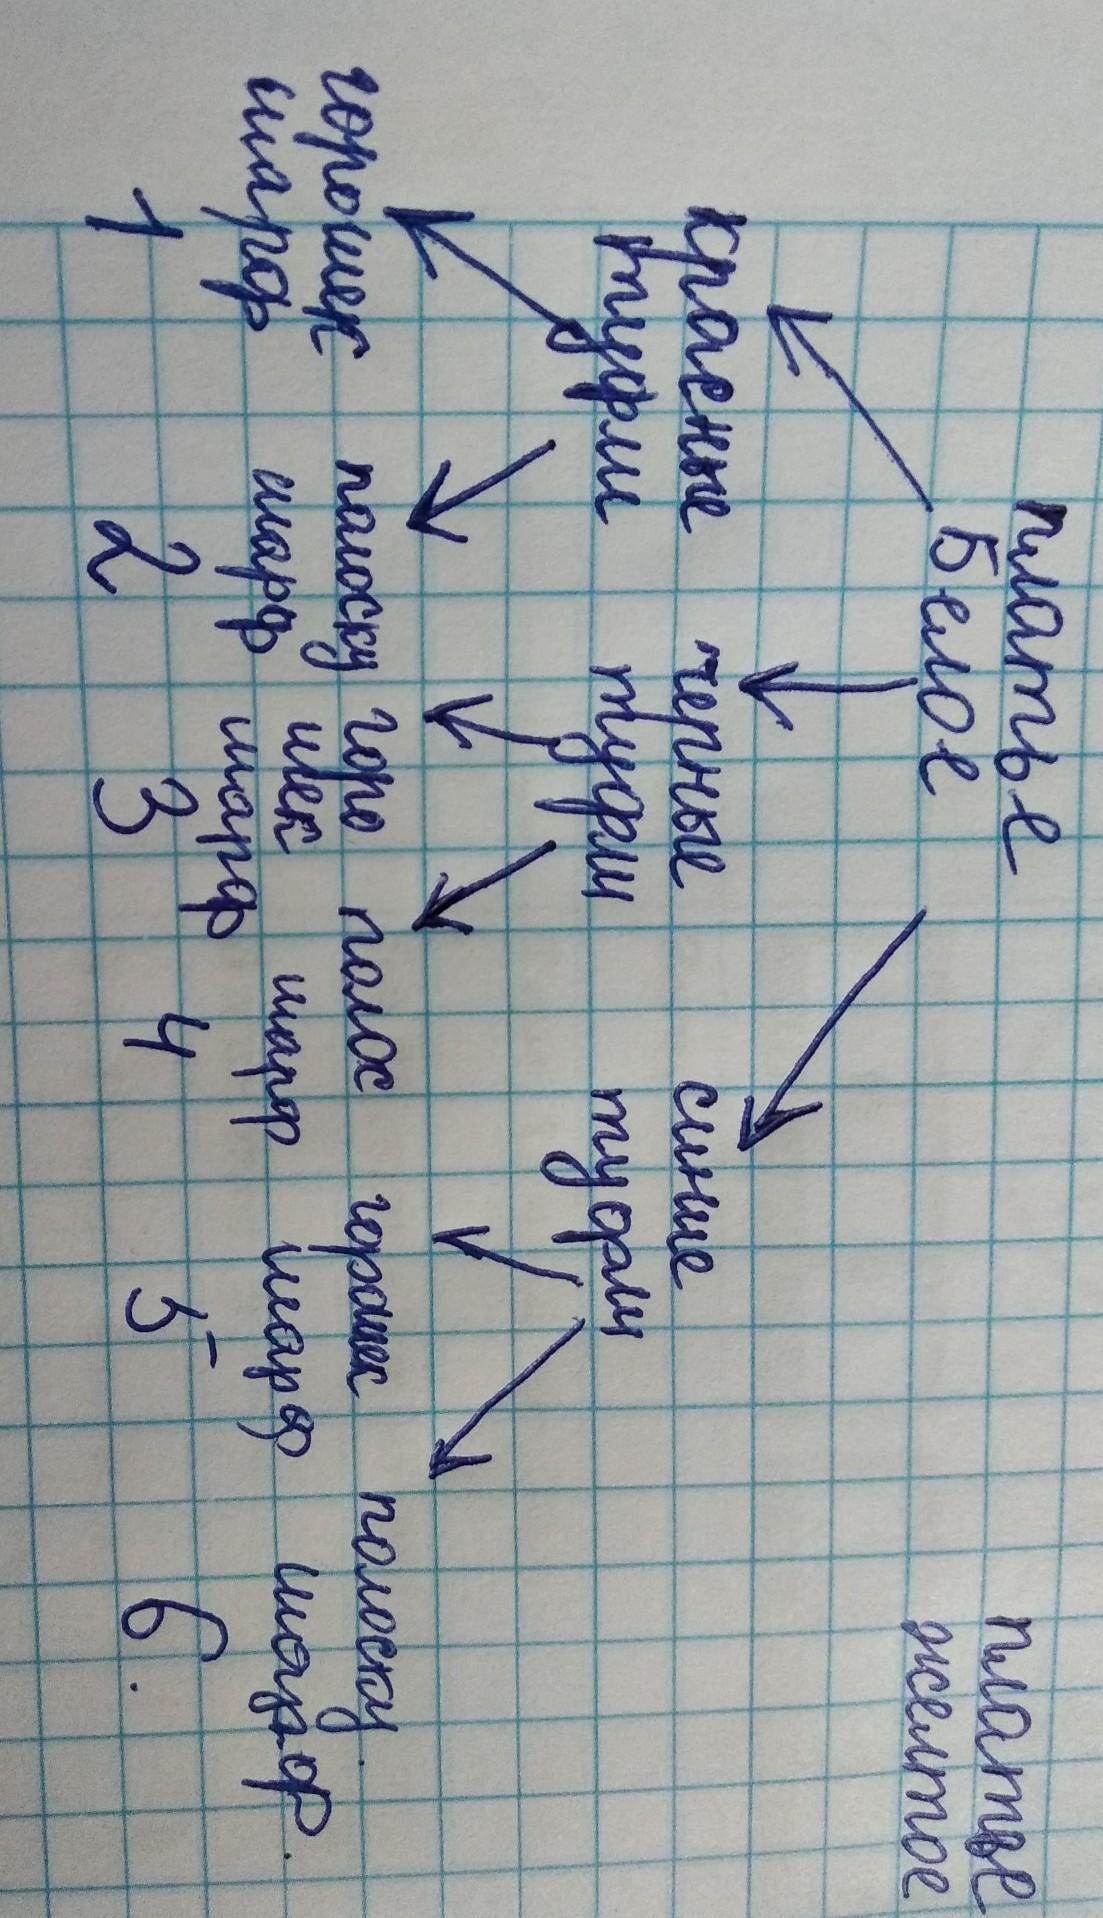 платье
белое
платье
желтое
красные
туфли
черные
туфли
синие
туфли
горошек
шарф
1
полоску
шарф
2
горо
шек
шарф
3
полос
шарф
4
горошек
шарф
5
полоску.
шарф.
6.